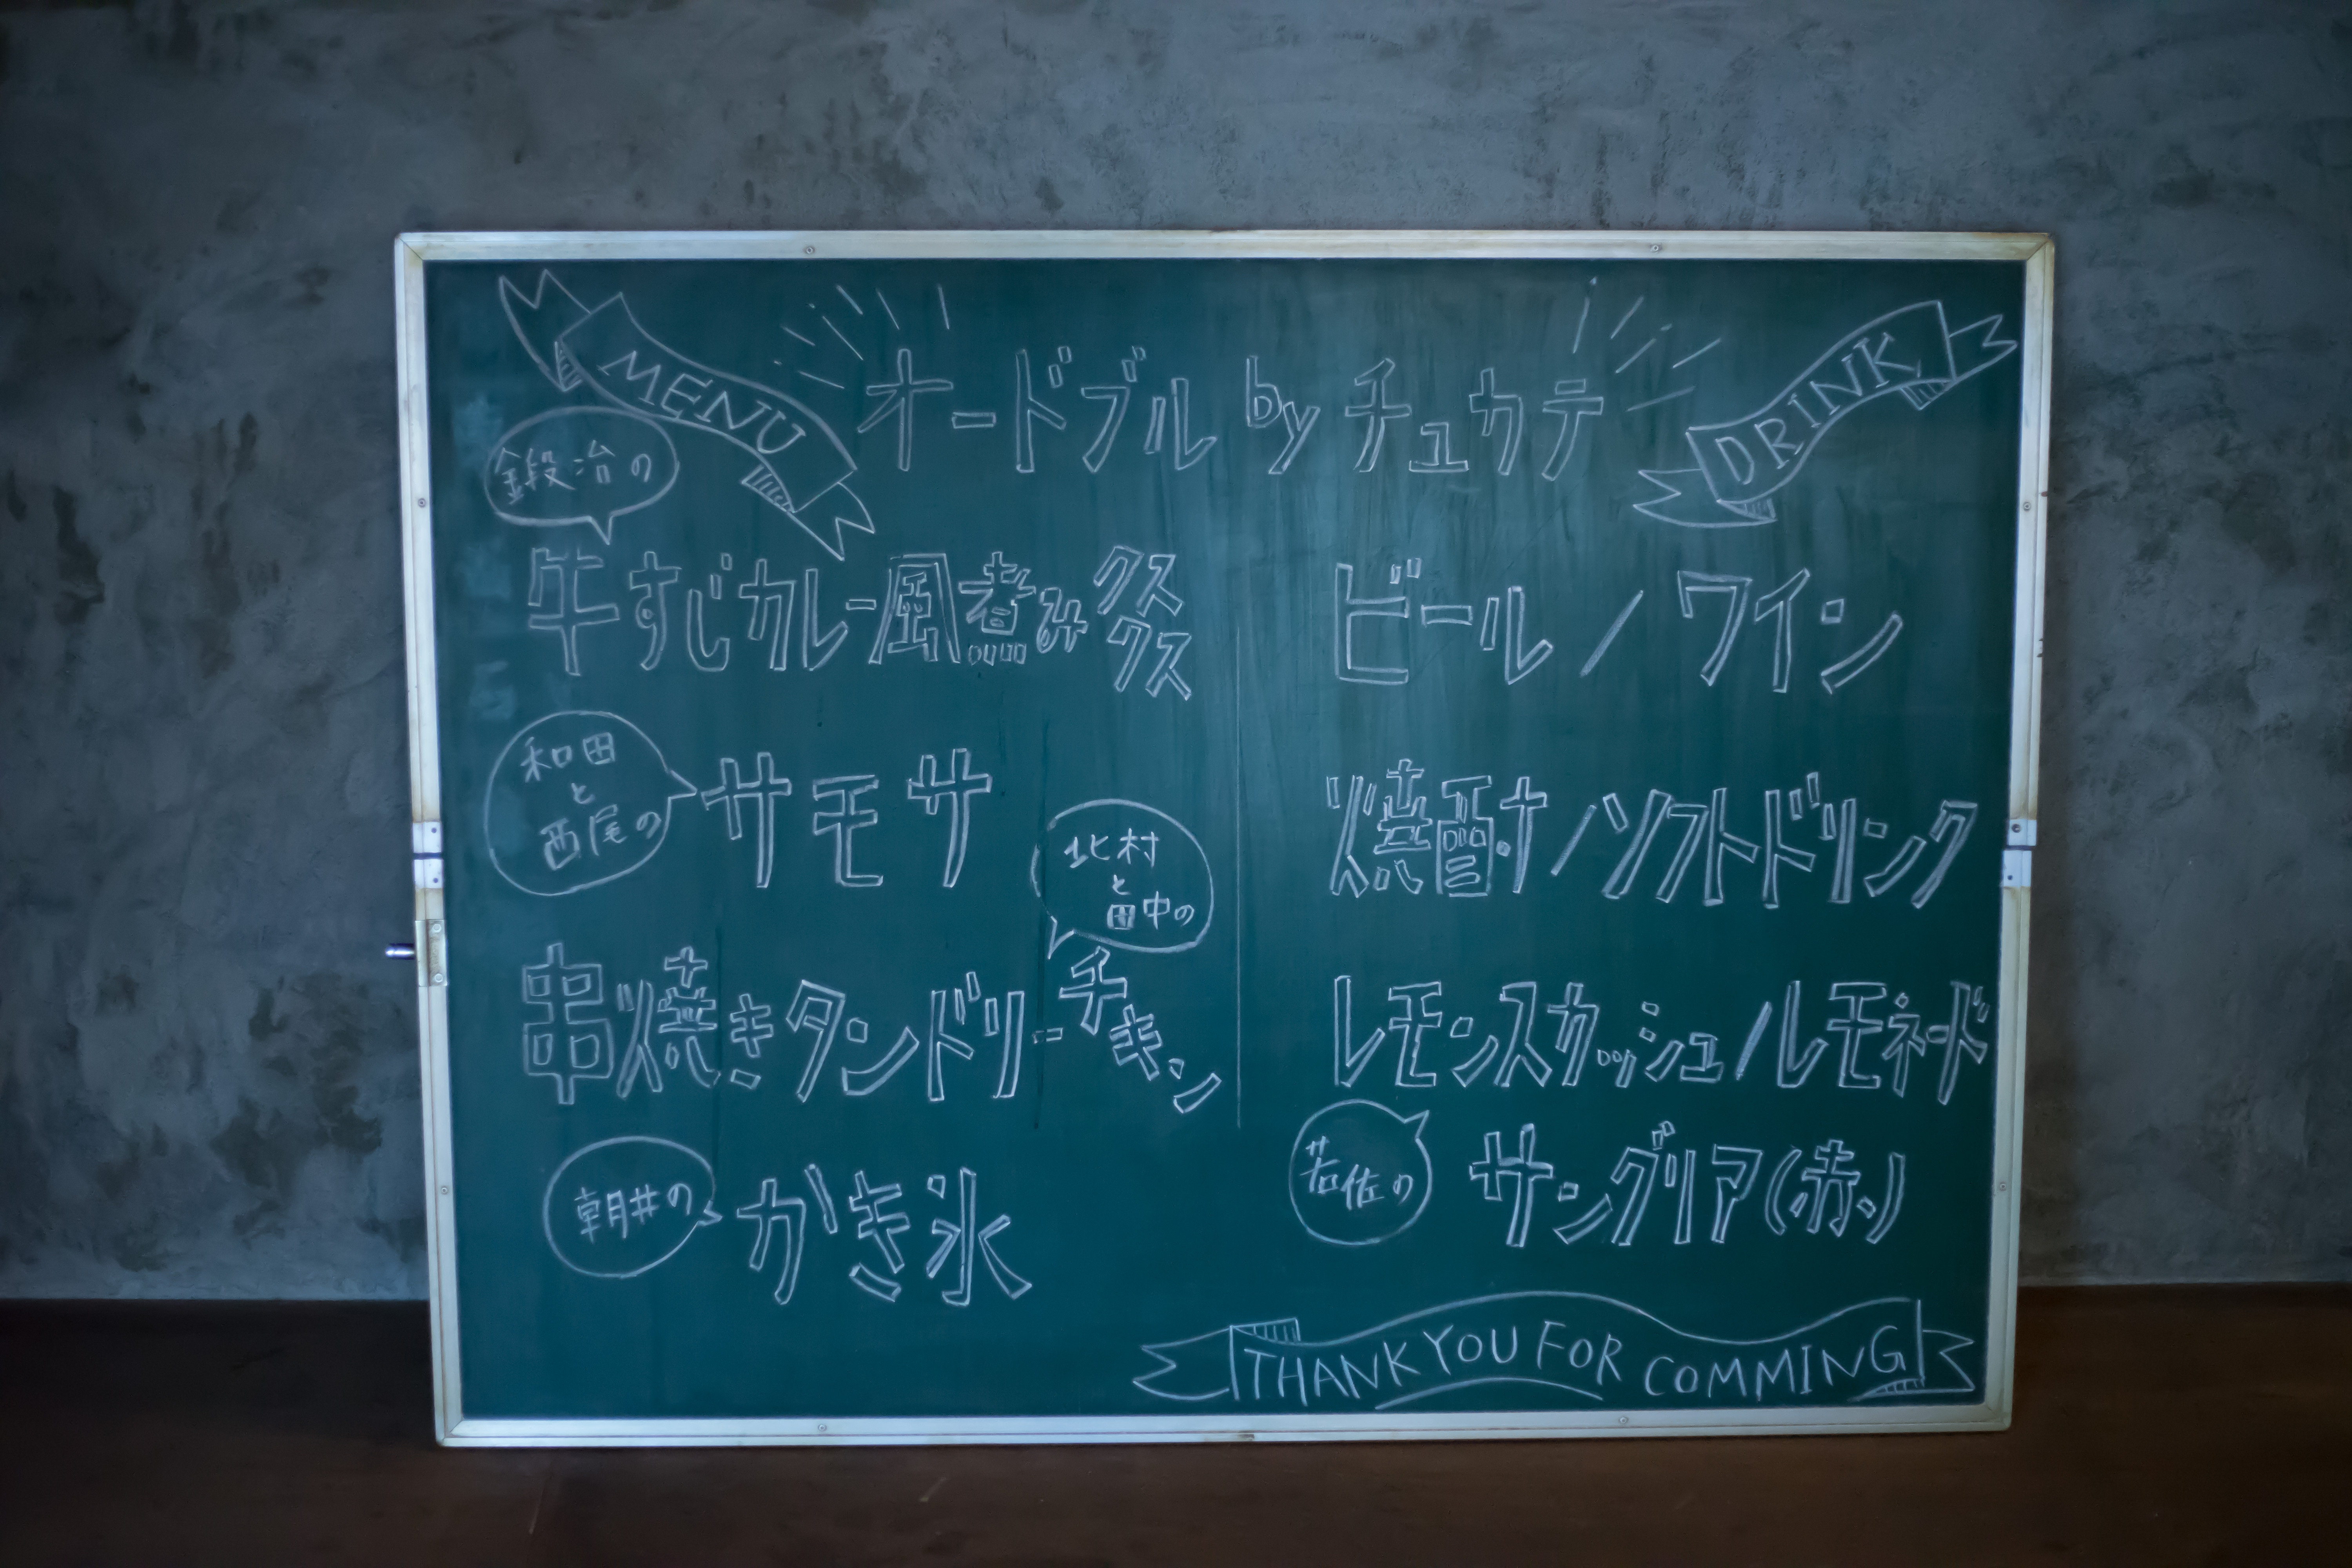 MENU
オードブル by チュカテ
DRINK
鍛冶の
牛すじカレー風煮み
クス
クス
和田
と
西尾の
サモサ
北村
と
田中の
串焼きタンドリーチキン
朝井の
かき氷
ビール / ワイン
焼酎 / ソフトドリンク
レモンスカッシュ / レモネード
若佐の
サングリア(赤)
THANK YOU FOR COMMING